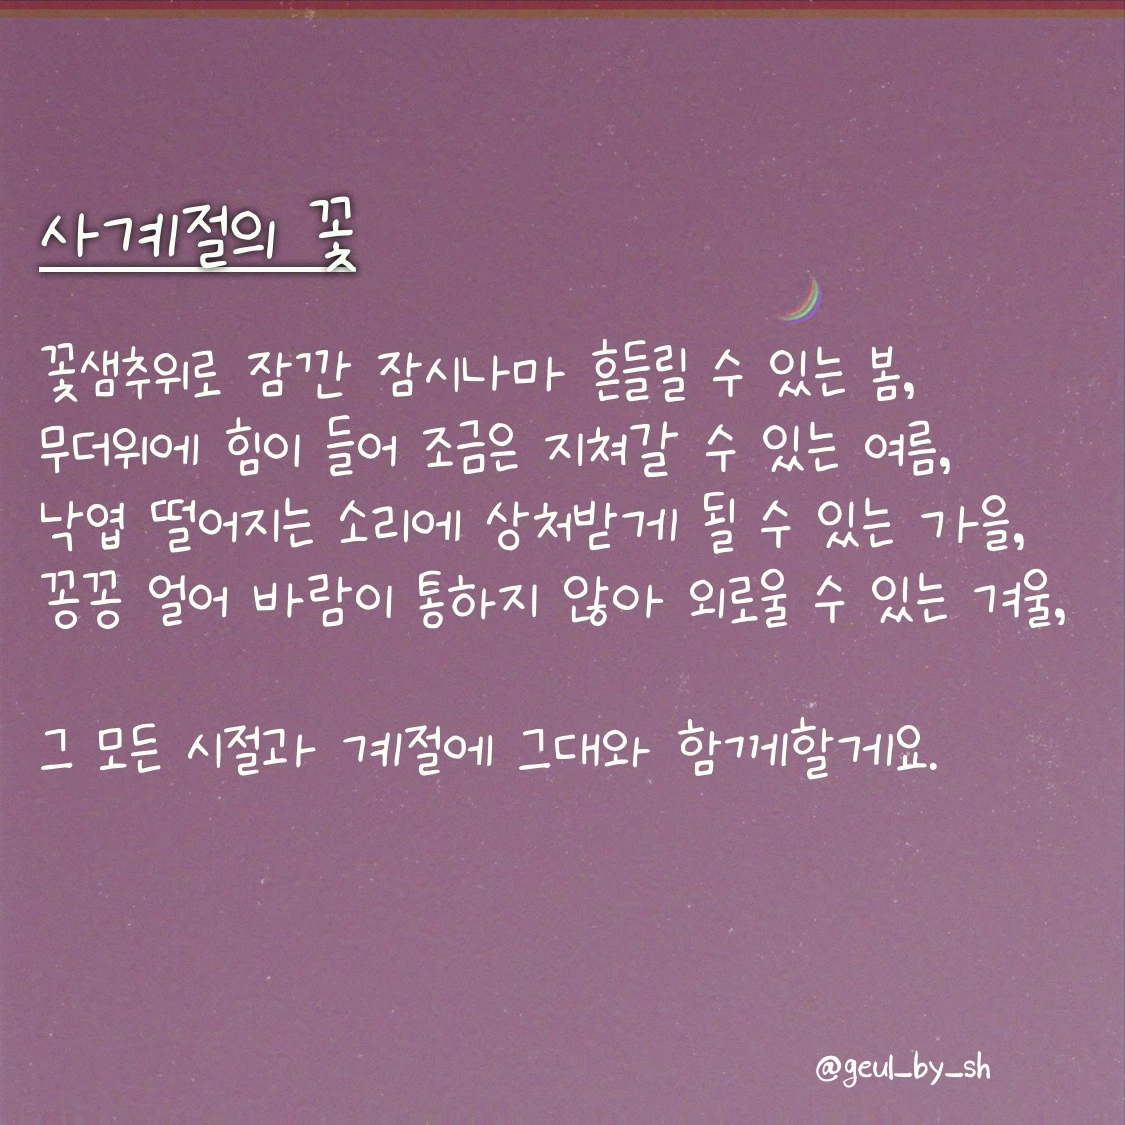 사계절의 꽃
꽃샘추위로 잠깐 잠시나마 흔들릴 수 있는 봄,
무더위에 힘이 들어 조금은 지쳐갈 수 있는 여름,
낙엽 떨어지는 소리에 상처받게 될 수 있는 가을,
꽁꽁 얼어 바람이 통하지 않아 외로울 수 있는 겨울,
그 모든 시절과 계절에 그대와 함께할게요.
@geul_by_sh